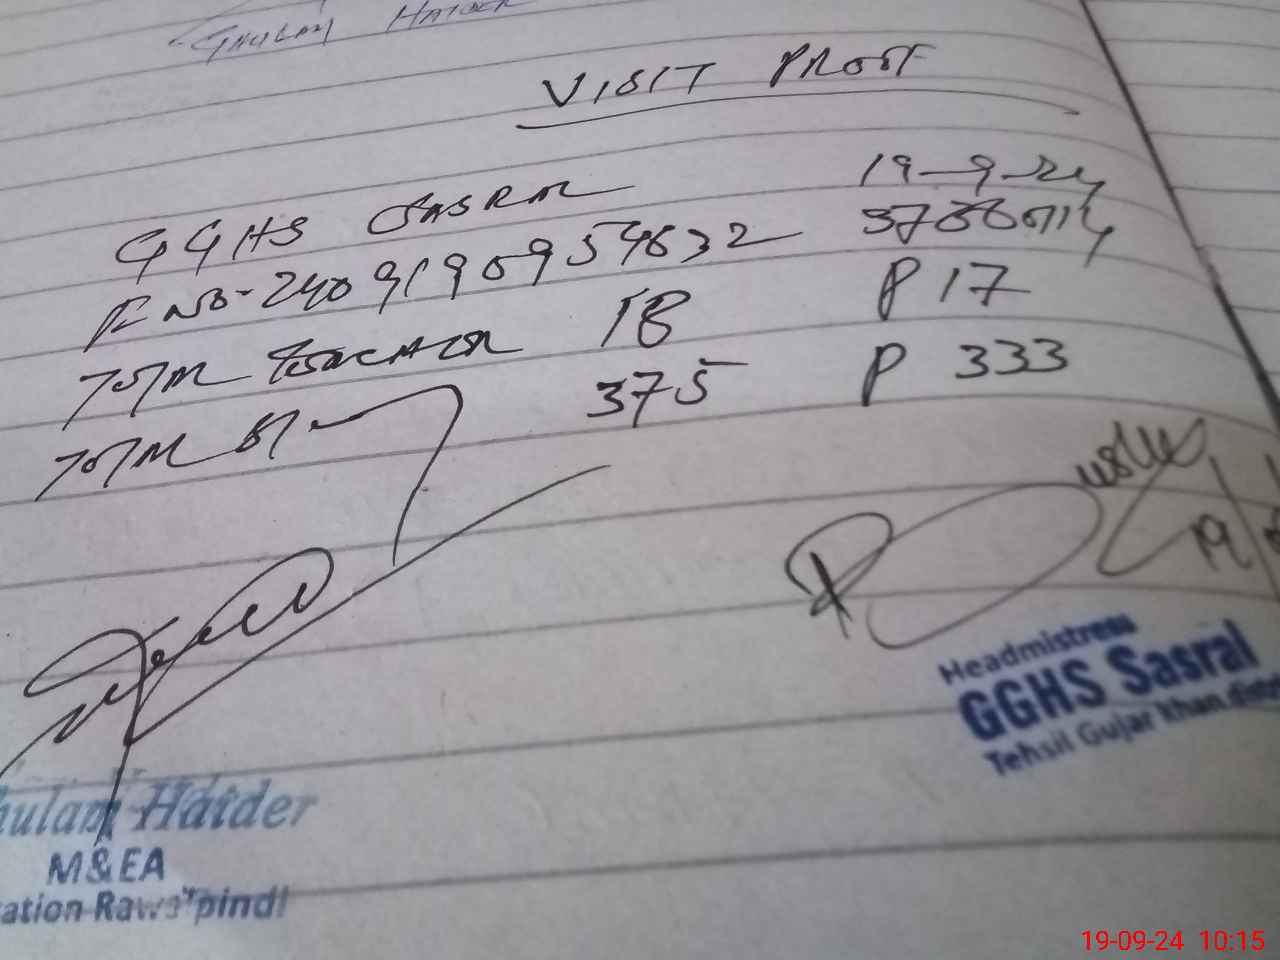 GHULAM HAIDER
VISIT PROOF
GGHS SASRAL 19-9-24
E NO-240919095 4632
TOTAL TEACHER 18 P 17
TOTAL ST 375 P 333
Headmistress
GGHS Sasral
Tehsil Gujar khan
hulam Haider
M&EA
ation Rawalpindi
19-09-24 10:15